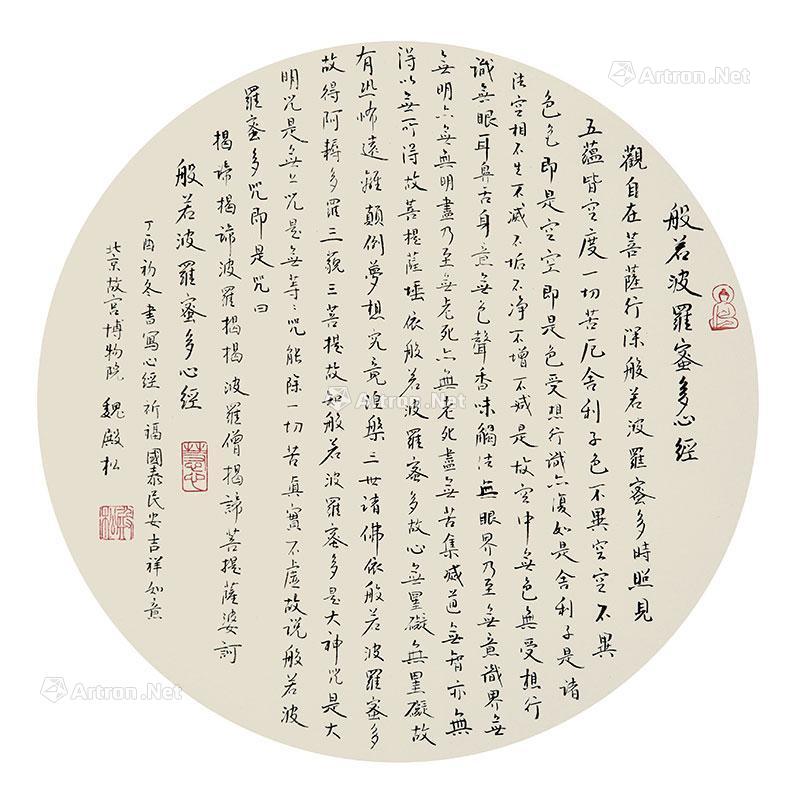 般若波羅蜜多心經
觀自在菩薩行深般若波羅蜜多時照見
五蘊皆空度一切苦厄舍利子色不異空空不異
色色即是空空即是色受想行識亦復如是舍利子是諸
法空相不生不滅不垢不净不增不减是故空中無色無受想行
識無眼耳鼻舌身意無色聲香味觸法無眼界乃至無意識界無
無明亦無無明盡乃至無老死亦無老死盡無苦集滅道無智亦無
得以無所得故菩提薩埵依般若波羅蜜多故心無罣礙無罣礙故
有恐怖遠離顛倒夢想究竟涅槃三世諸佛依般若波羅蜜多
故得阿耨多羅三藐三菩提故知般若波羅蜜多是大神咒是大
明咒是無上咒是無等々咒能除一切苦真實不虛故說般若波
羅蜜多咒即是咒曰
揭諦揭諦波羅揭揭波羅僧揭諦菩提薩婆訶
般若波羅蜜多心經
丁酉初冬書寫心經祈福國泰民安吉祥如意
北京故宮博物院 魏殿松
Artron.Net
Artron.Net
Artron.Net
Artron.Net
Artron.Net